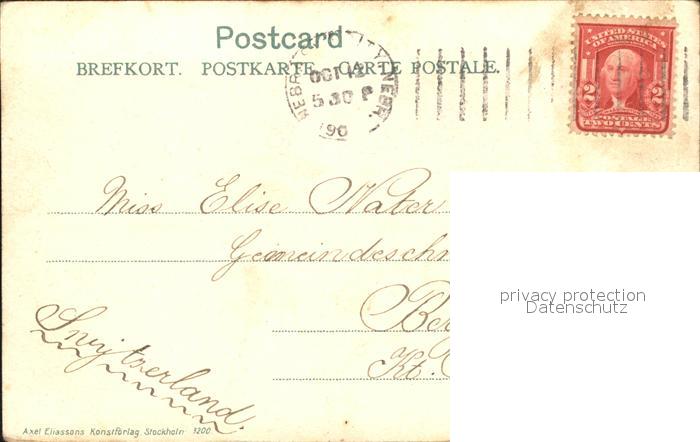 Postcard
BREFKORT. POSTKARTE. CARTE POSTALE.
NEBRASKA CITY, NEBR.
OCT 12
5 30 P
'90
UNITED STATES
OF AMERICA
2 2
POSTAGE
TWO CENTS
Miss Elise Nater
Gemeindeschr
Ber
Kt.
Switzerland.
privacy protection
Datenschutz
Axel Eliassons Konstförlag, Stockholm 3200